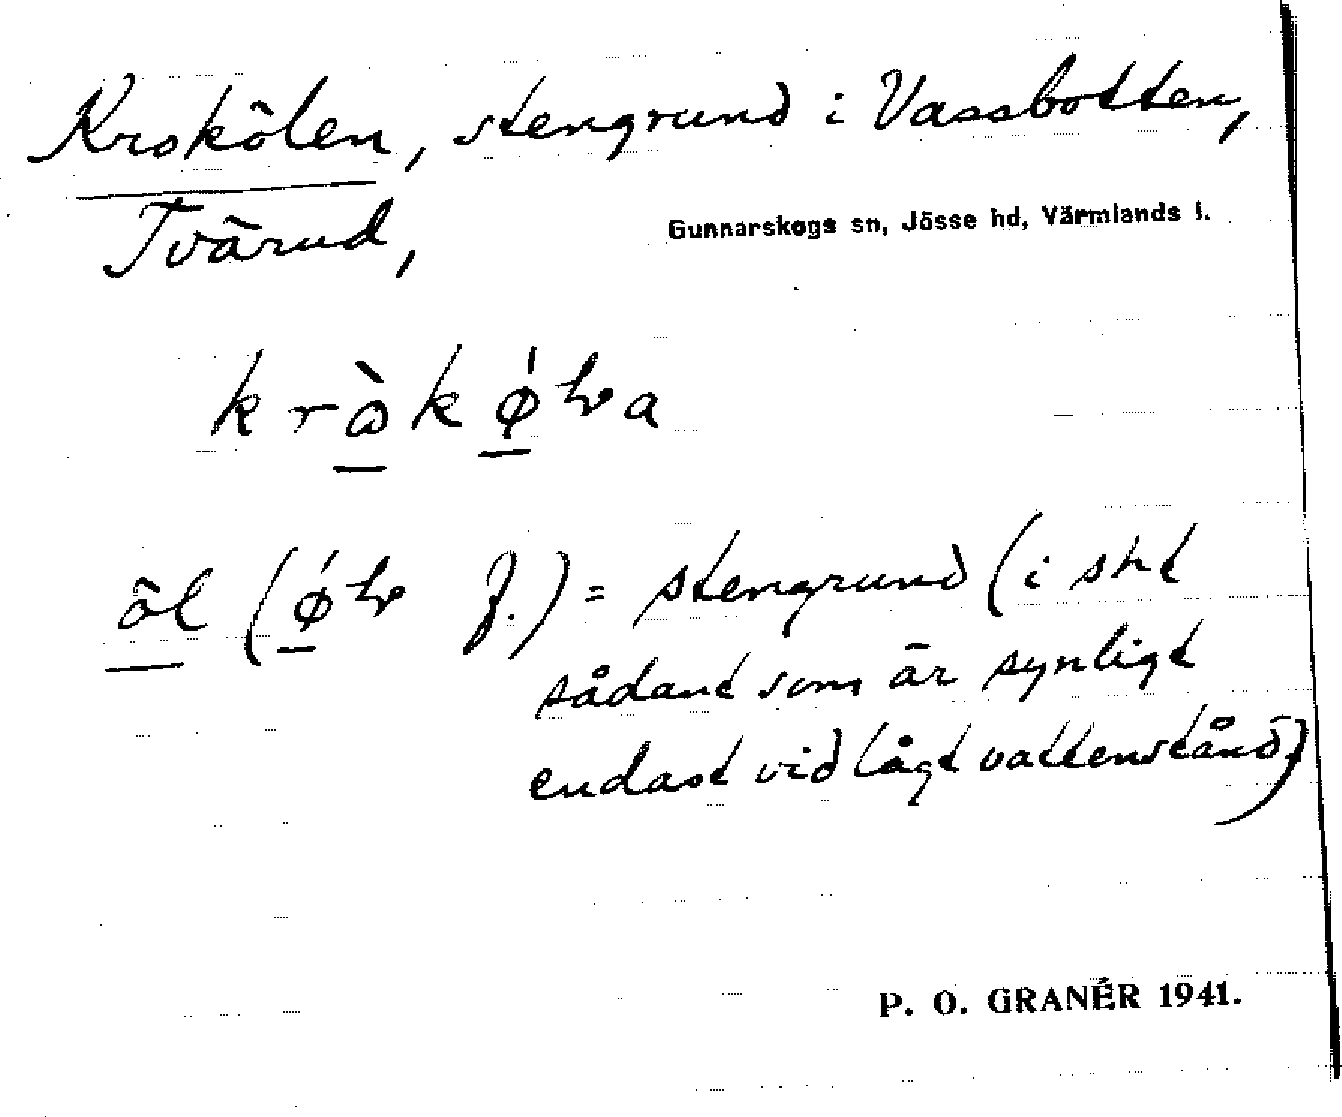 Krokölen, stengrund i Vassbotten,
Tvärud,
Gunnarskogs sn, Jösse hd, Värmlands l.
öl ( f.) = stengrund (i sht
sådant som är synligt
endast vid lågt vattenstånd)
P. O. GRANÉR 1941.